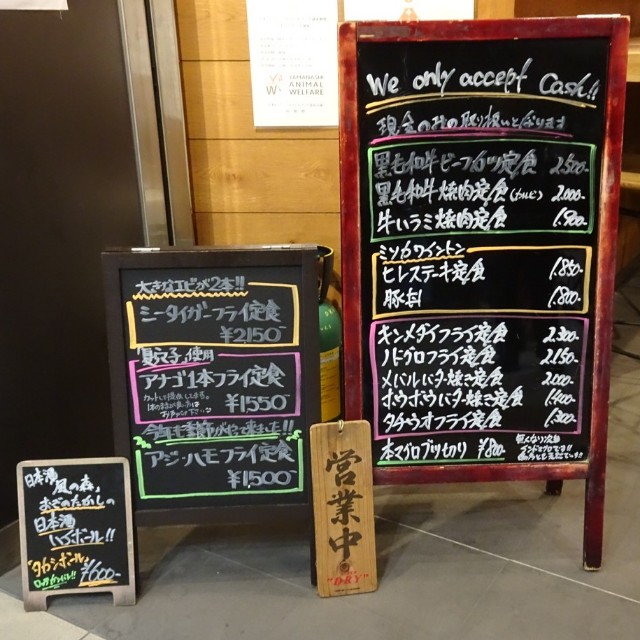 We only accept Cash!!
現金のみの取り扱いとなります
黒毛和牛ビーフカツ定食 2.500-
黒毛和牛焼肉定食(カルビ) 2.000-
牛ハラミ焼肉定食 1.900-
ミツカワイントン
ヒレステーキ定食 1.850-
豚丼 1.800-
キンメダイフライ定食 2.300-
ノドグロフライ定食 2.150-
メバルバター焼き定食 2.000-
ホウボウバター焼き定食 1.400-
タチウオフライ定食 1.300-
本マグロブツ切り ¥800-
無くなり次第
大きなエビが2本!!
シータイガーフライ定食
¥2150-
使用
アナゴ1本フライ定食
¥1550-
今年も季節がやって来ました!!
アジ・ハモフライ定食
¥1500-
日本酒
「風の森」
おぎのたかしの
日本酒
ハイボール!!
「タカシボール」
¥600-
営業中
"DRY"
YAMANASHI
ANIMAL
WELFARE